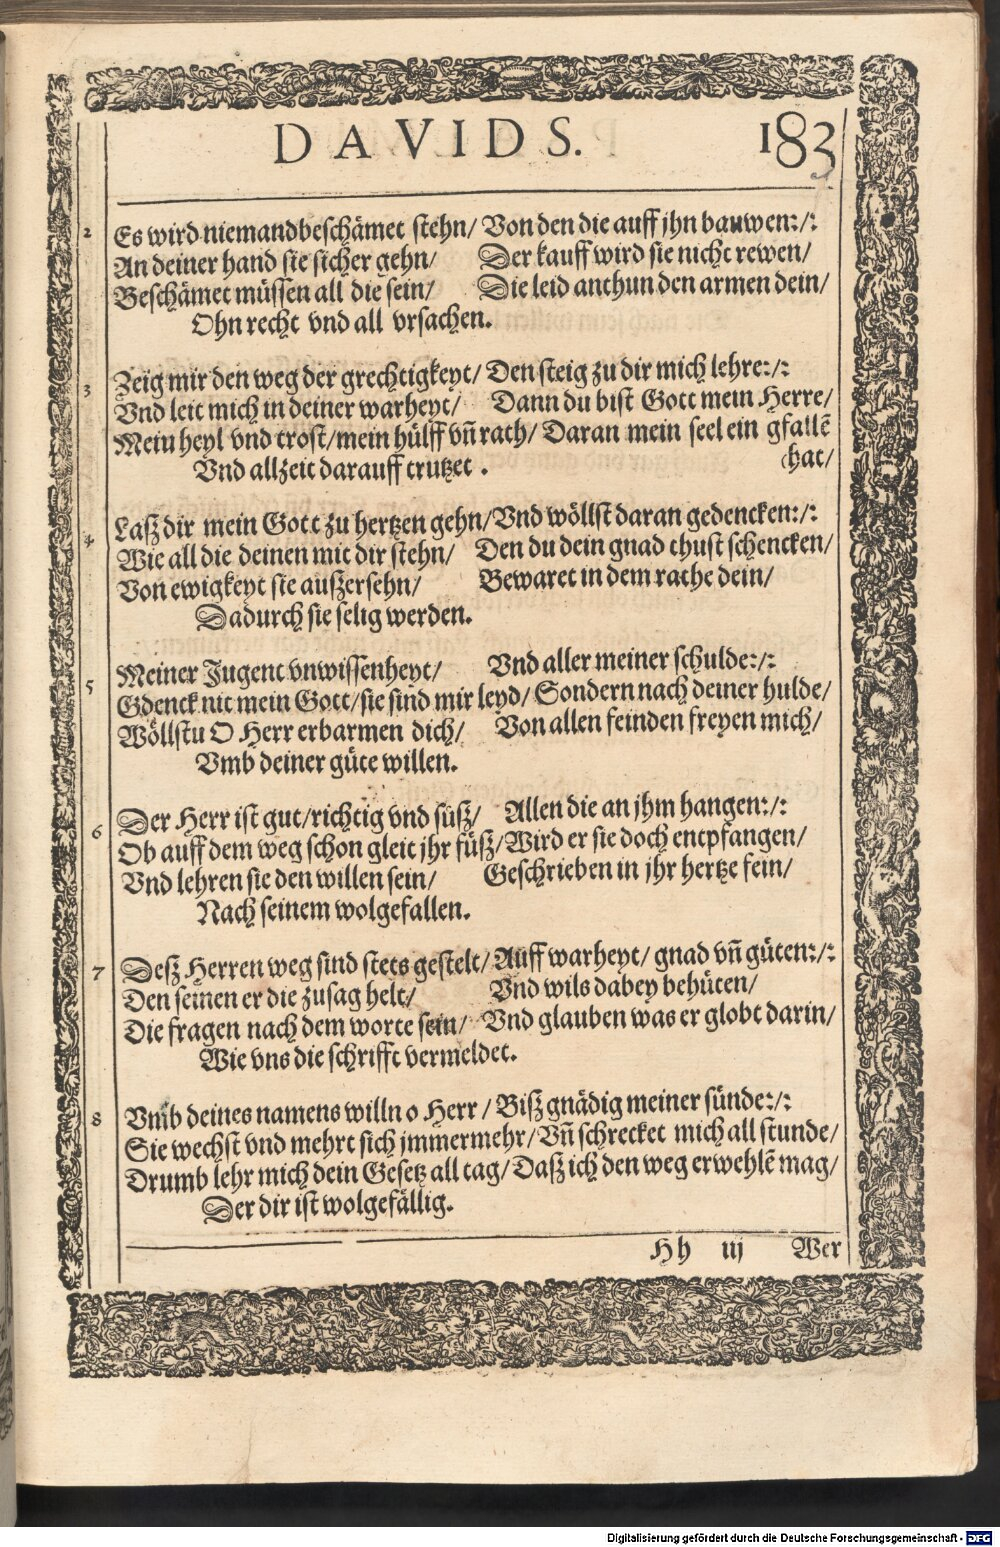 DAVIDS. 183
2 Es wird niemand beschämet stehn/ Von den die auff jhn bauwen:/:
An deiner hand sie sicher gehn/ Der kauff wird sie nicht rewen/
Beschämet müssen all die sein/ Die leid anthun den armen dein/
Ohn recht vnd all vrsachen.
3 Zeig mir den weg der grechtigkeyt/ Den steig zu dir mich lehre:/:
Vnd leit mich in deiner warheyt/ Dann du bist Gott mein Herre/
Mein heyl vnd trost/mein hülff vñ rath/ Daran mein seel ein gfallẽ
Vnd allzeit darauff trutzet . (hat/
4 Lasz dir mein Gott zu hertzen gehn/Vnd wöllst daran gedencken:/:
Wie all die deinen mit dir stehn/ Den du dein gnad thust schencken/
Von ewigkeyt sie auszersehn/ Bewaret in dem rathe dein/
Dadurch sie selig werden.
5 Meiner Jugent vnwissenheyt/ Vnd aller meiner schulde:/:
Gdenck nit mein Gott/sie sind mir leyd/ Sondern nach deiner hulde/
Wöllstu O Herr erbarmen dich/ Von allen feinden freyen mich/
Vmb deiner güte willen.
6 Der Herr ist gut/richtig vnd süsz/ Allen die an jhm hangen:/:
Ob auff dem weg schon gleit jhr füsz/Wird er sie doch entpfangen/
Vnd lehren sie den willen sein/ Geschrieben in jhr hertze fein/
Nach seinem wolgefallen.
7 Desz Herren weg sind stets gestelt/Auff warheyt/ gnad vñ güten:/:
Den seinen er die zusag helt/ Vnd wils dabey behüten/
Die fragen nach dem worte sein/ Vnd glauben was er globt darin/
Wie vns die schrifft vermeldet.
8 Vmb deines namens willn o Herr/ Bisz gnädig meiner sünde:/:
Sie wechst vnd mehrt sich jmmermehr/Vñ schrecket mich all stunde/
Drumb lehr mich dein Gesetz all tag/Dasz ich den weg erwehlẽ mag/
Der dir ist wolgefällig.
Hh iij Wer
Digitalisierung gefördert durch die Deutsche Forschungsgemeinschaft - DFG